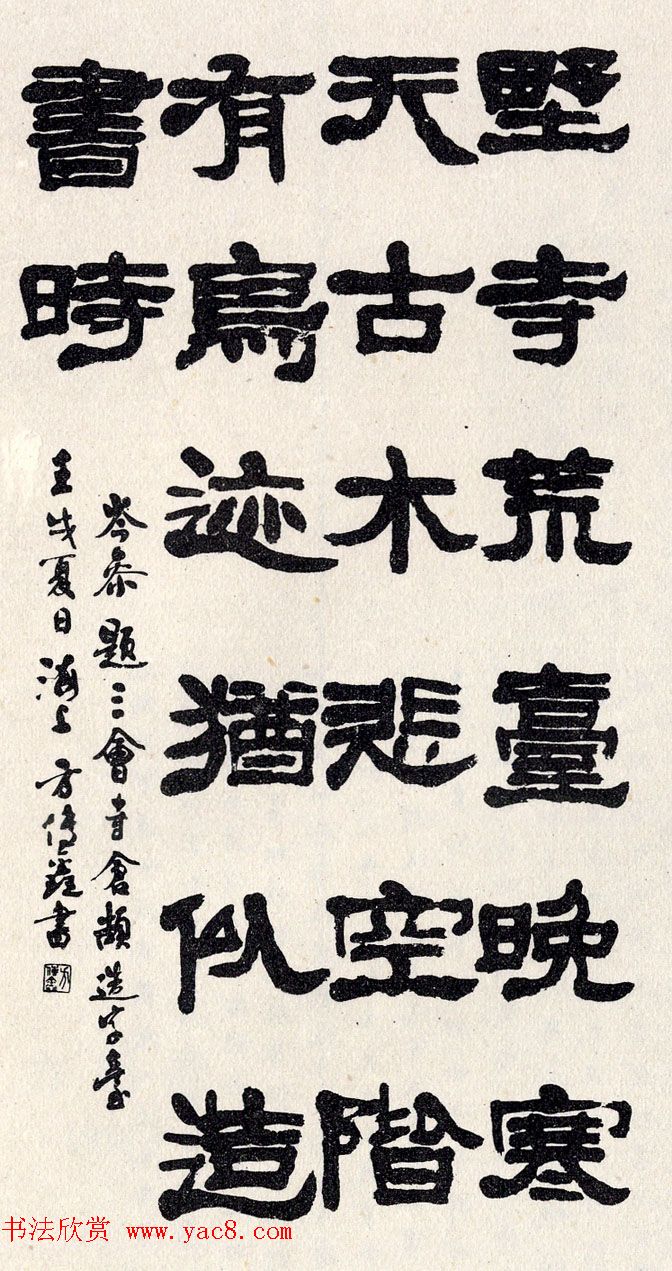 野寺荒臺晚寒
天古木悲空階
有鳥迹猶似造
書時
岑參題三會寺倉頡造字臺
壬戌夏日海上方傳鑫書
书法欣赏 www.yac8.com